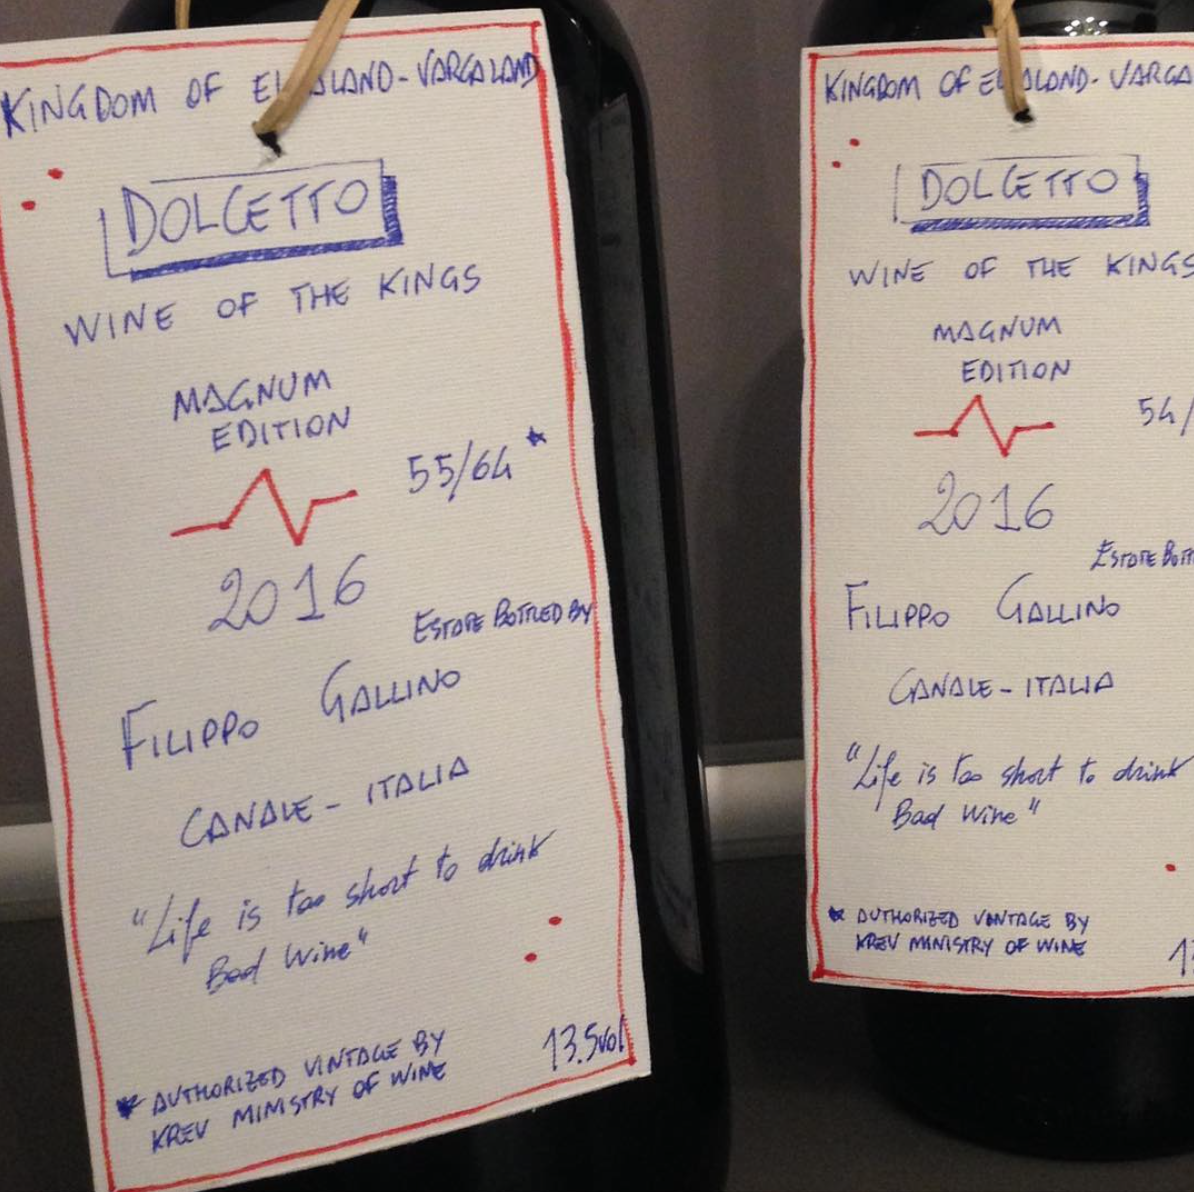 KINGDOM OF ELGALAND-VARGALAND
DOLCETTO
WINE OF THE KINGS
MAGNUM
EDITION
55/64 *
2016
ESTATE BOTTLED BY
FILIPPO GALLINO
CANALE - ITALIA
"Life is too short to drink
Bad Wine"
13.5vol
* AUTHORIZED VINTAGE BY
KREV MINISTRY OF WINE
KINGDOM OF ELGALAND-VARGA
DOLCETTO
WINE OF THE KINGS
MAGNUM
EDITION
54/
2016
ESTATE BOTT
FILIPPO GALLINO
CANALE - ITALIA
"Life is too short to drink
Bad Wine"
* AUTHORIZED VINTAGE BY
KREV MINISTRY OF WINE
13